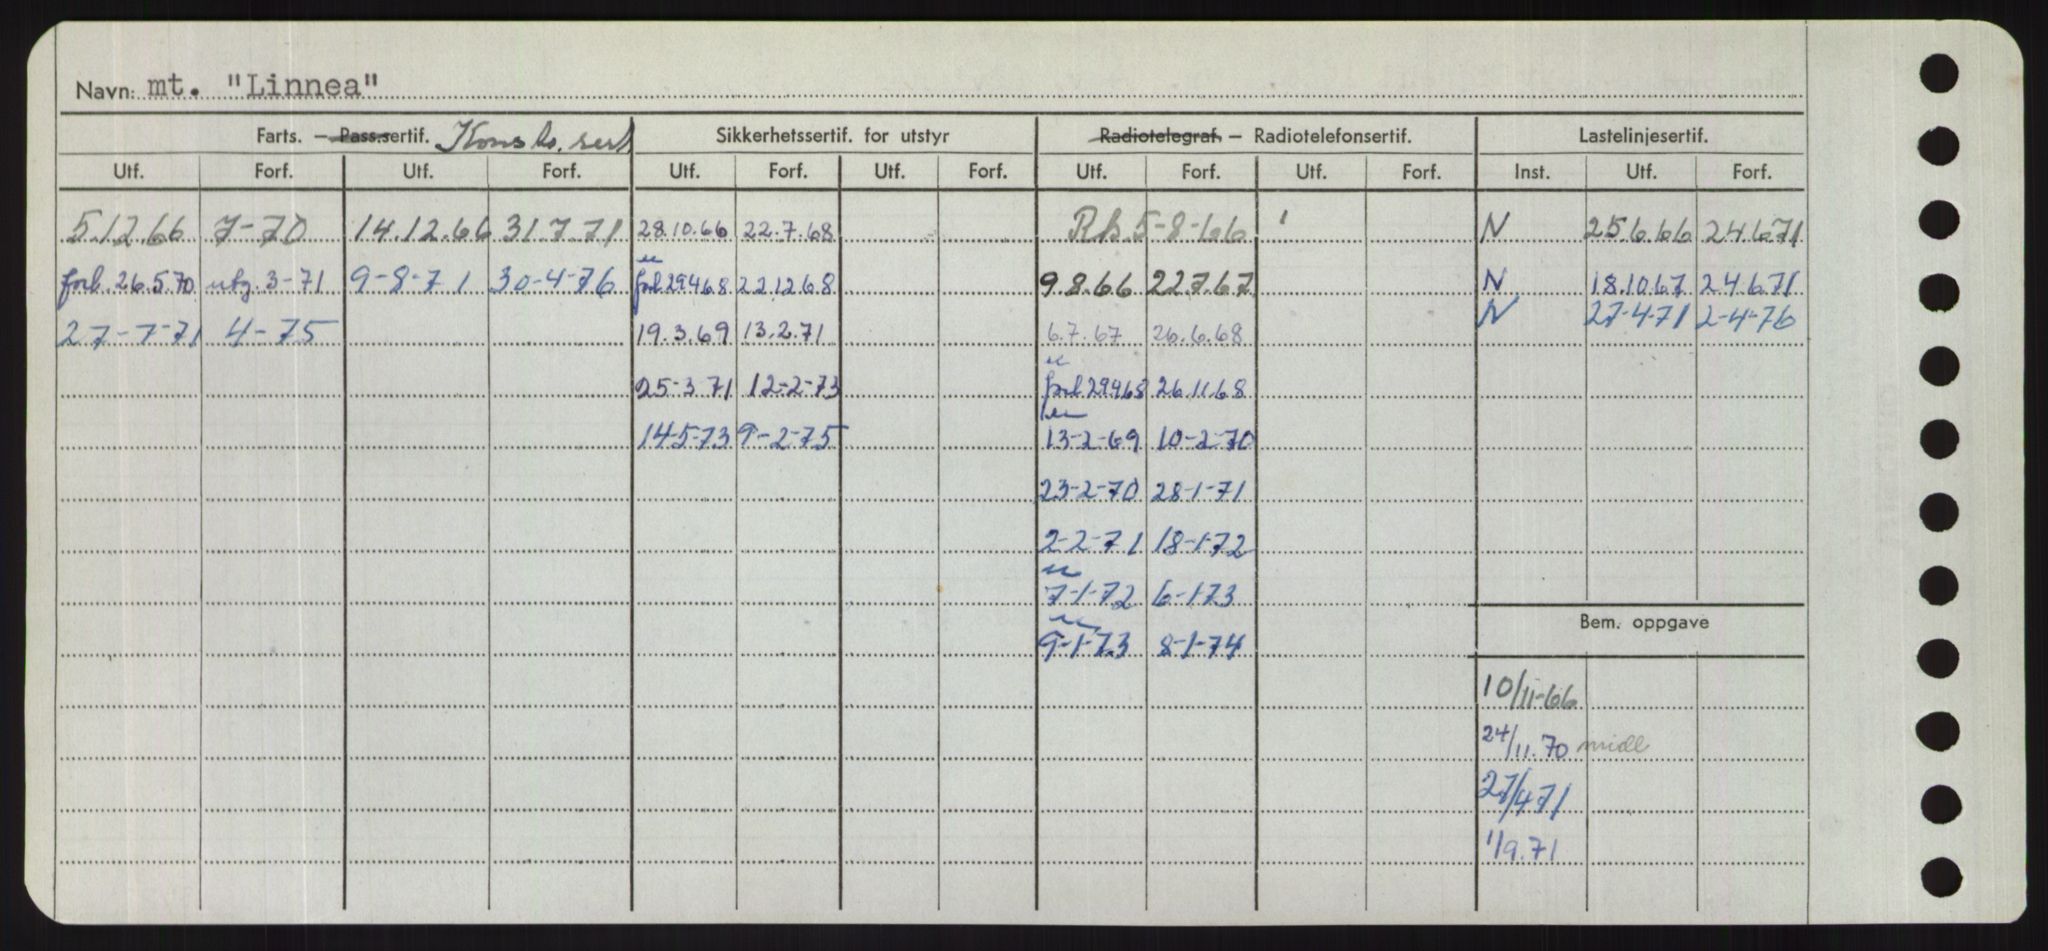 Navn: mt. "Linnea"
Farts. – Pass.sertif. Konstr. sert Sikkerhetssertif. for utstyr Radiotelegraf – Radiotelefonsertif. Lastelinjesertif.
Utf. Forf. Utf. Forf. Utf. Forf. Utf. Forf. Utf. Forf. Utf. Forf. Inst. Utf. Forf.
5.12.66 7-70 14.12.66 31.7.71 28.10.66 22.7.68 Rb. 5-8-66 N 25.6.66 24.6.71
forl. 26.5.70 utg. 3-71 9-8-71 30-4-76 forl 29.4.68 22.12.68 9.8.66 22.7.67 N 18.10.67 24.6.71
N 27-4-71 2-4-76
27-7-71 4-75 19.3.69 13.2.71 6.7.67 26.6.68
25-3-71 12-2-73 forl 29.4.68 26.11.68
14-5-73 9-2-75 13-2-69 10-2-70
23-2-70 28-1-71
2-2-71 18-1-72
7-1-72 6-1-73
9-1-73 8-1-74
Bem. oppgave
10/11-66
24/11.70 midl
27/4 71
1/9.71